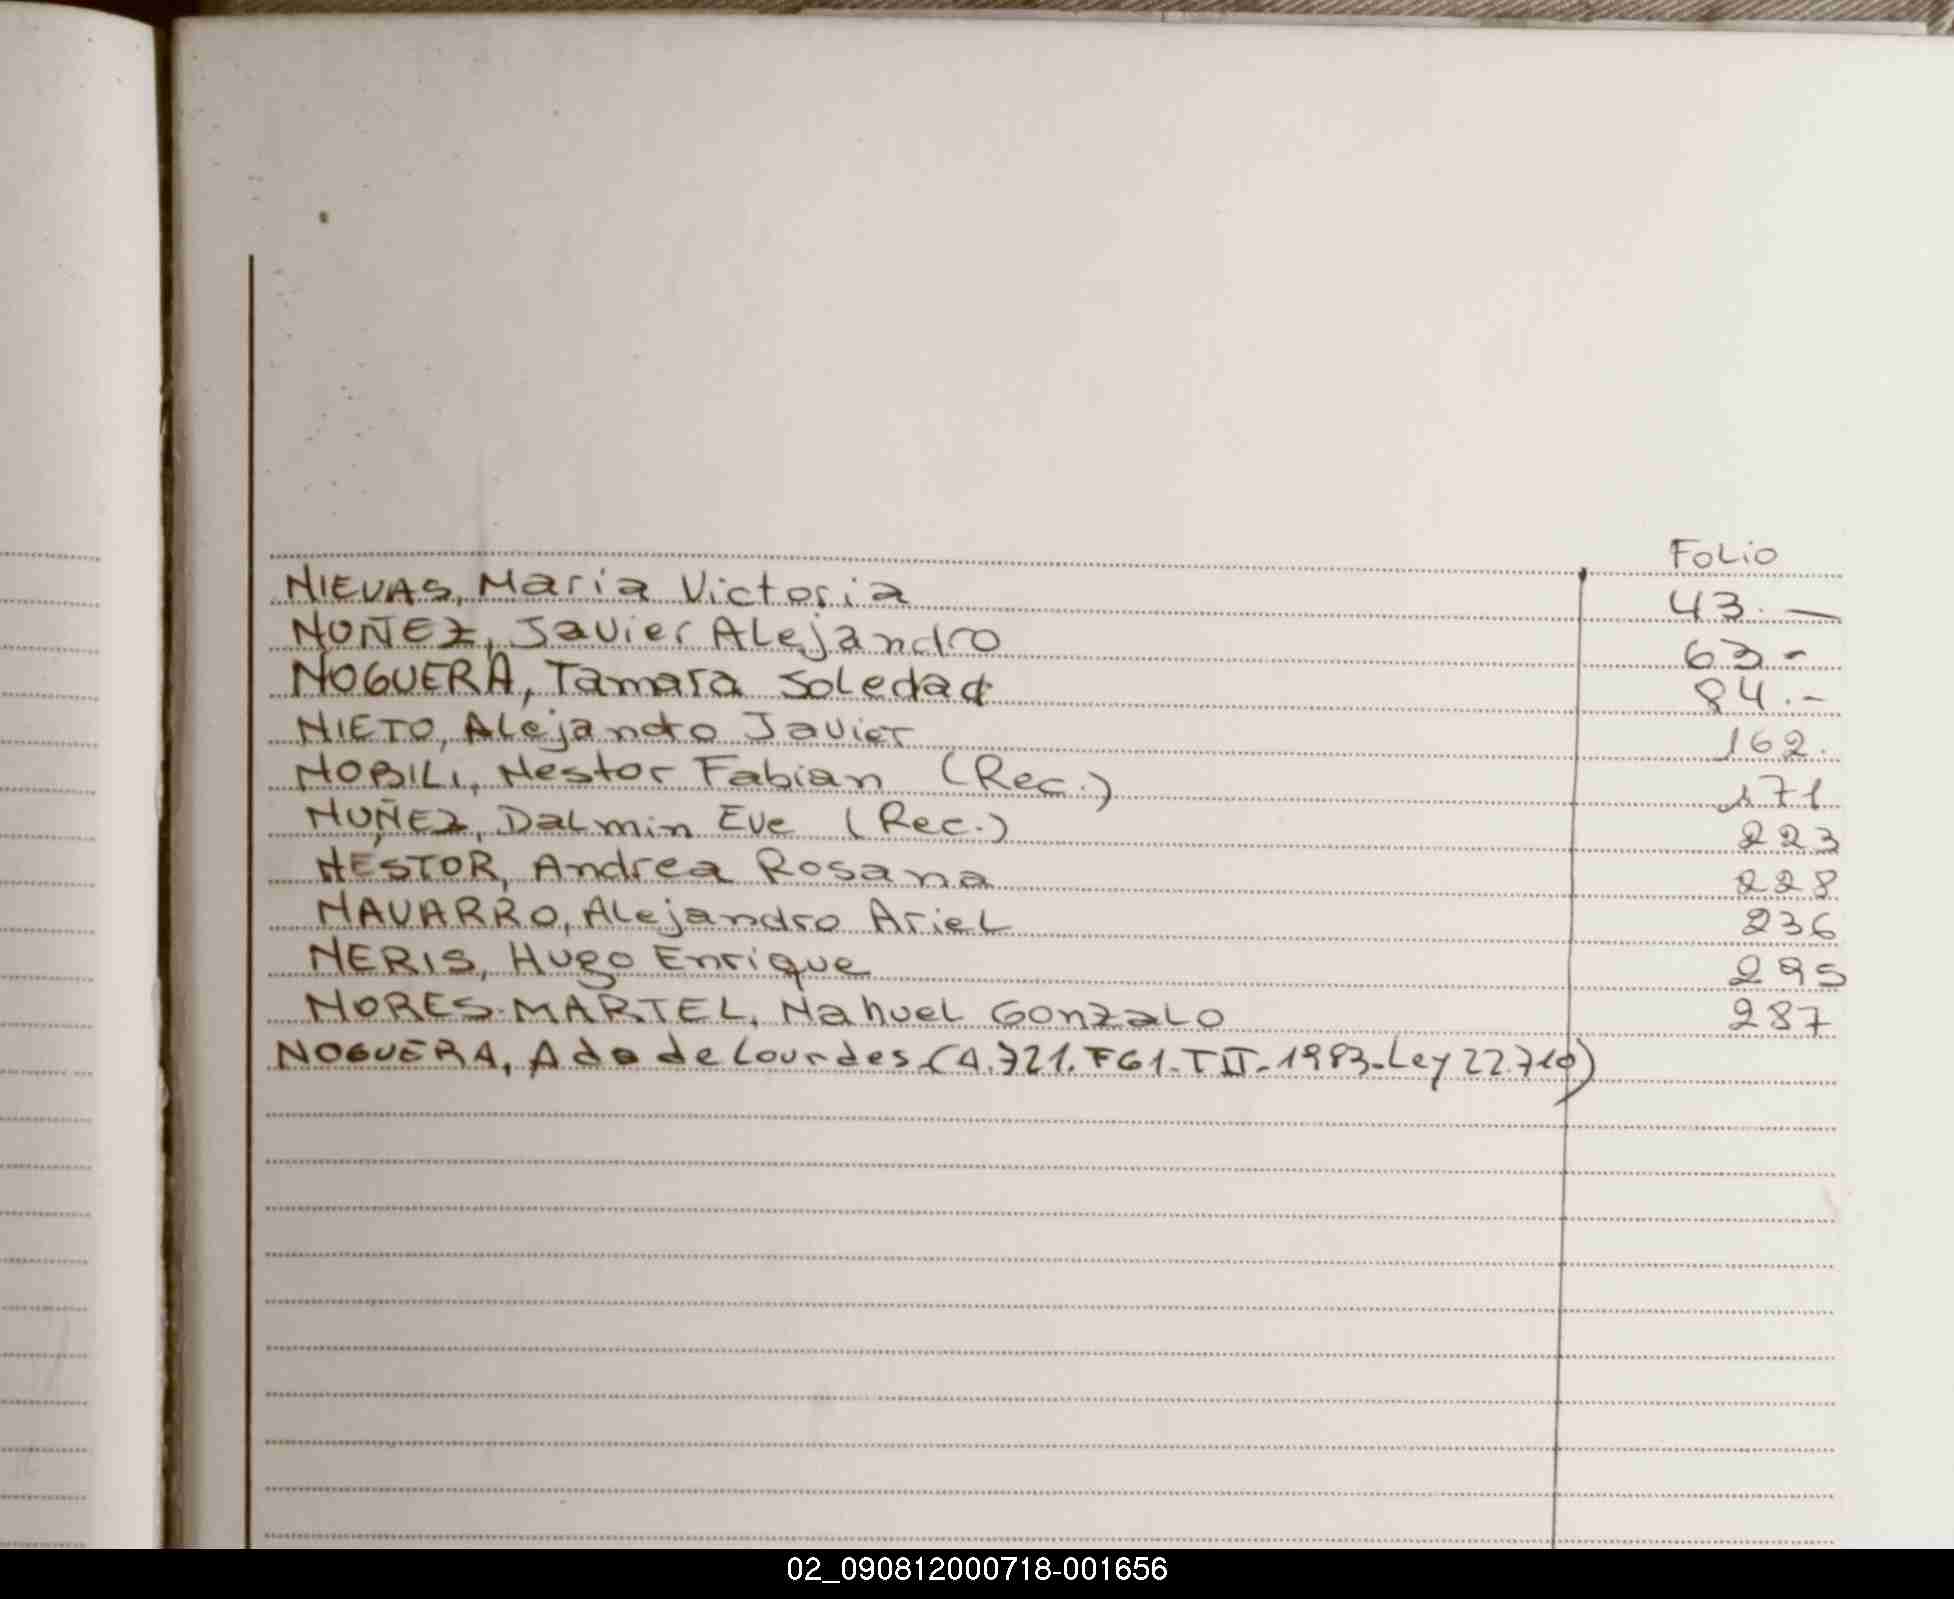 FOLIO
NIEVAS, Maria Victoria 43.—
NUÑEZ, Javier Alejandro 63-
NOGUERA, Tamara Soledad 84.-
NIETO, Alejandro Javier 162.
NOBILI, Nestor Fabian (Rec.) 171
NUÑEZ, Dalmin Eve (Rec.) 223
NESTOR, Andrea Rosana 228
NAVARRO, Alejandro Ariel 236
NERIS, Hugo Enrique 295
NORES-MARTEL, Nahuel Gonzalo 287
NOGUERA, Ada de Lourdes (A.721.F61-TII-1983-Ley 22.710)
02_090812000718-001656